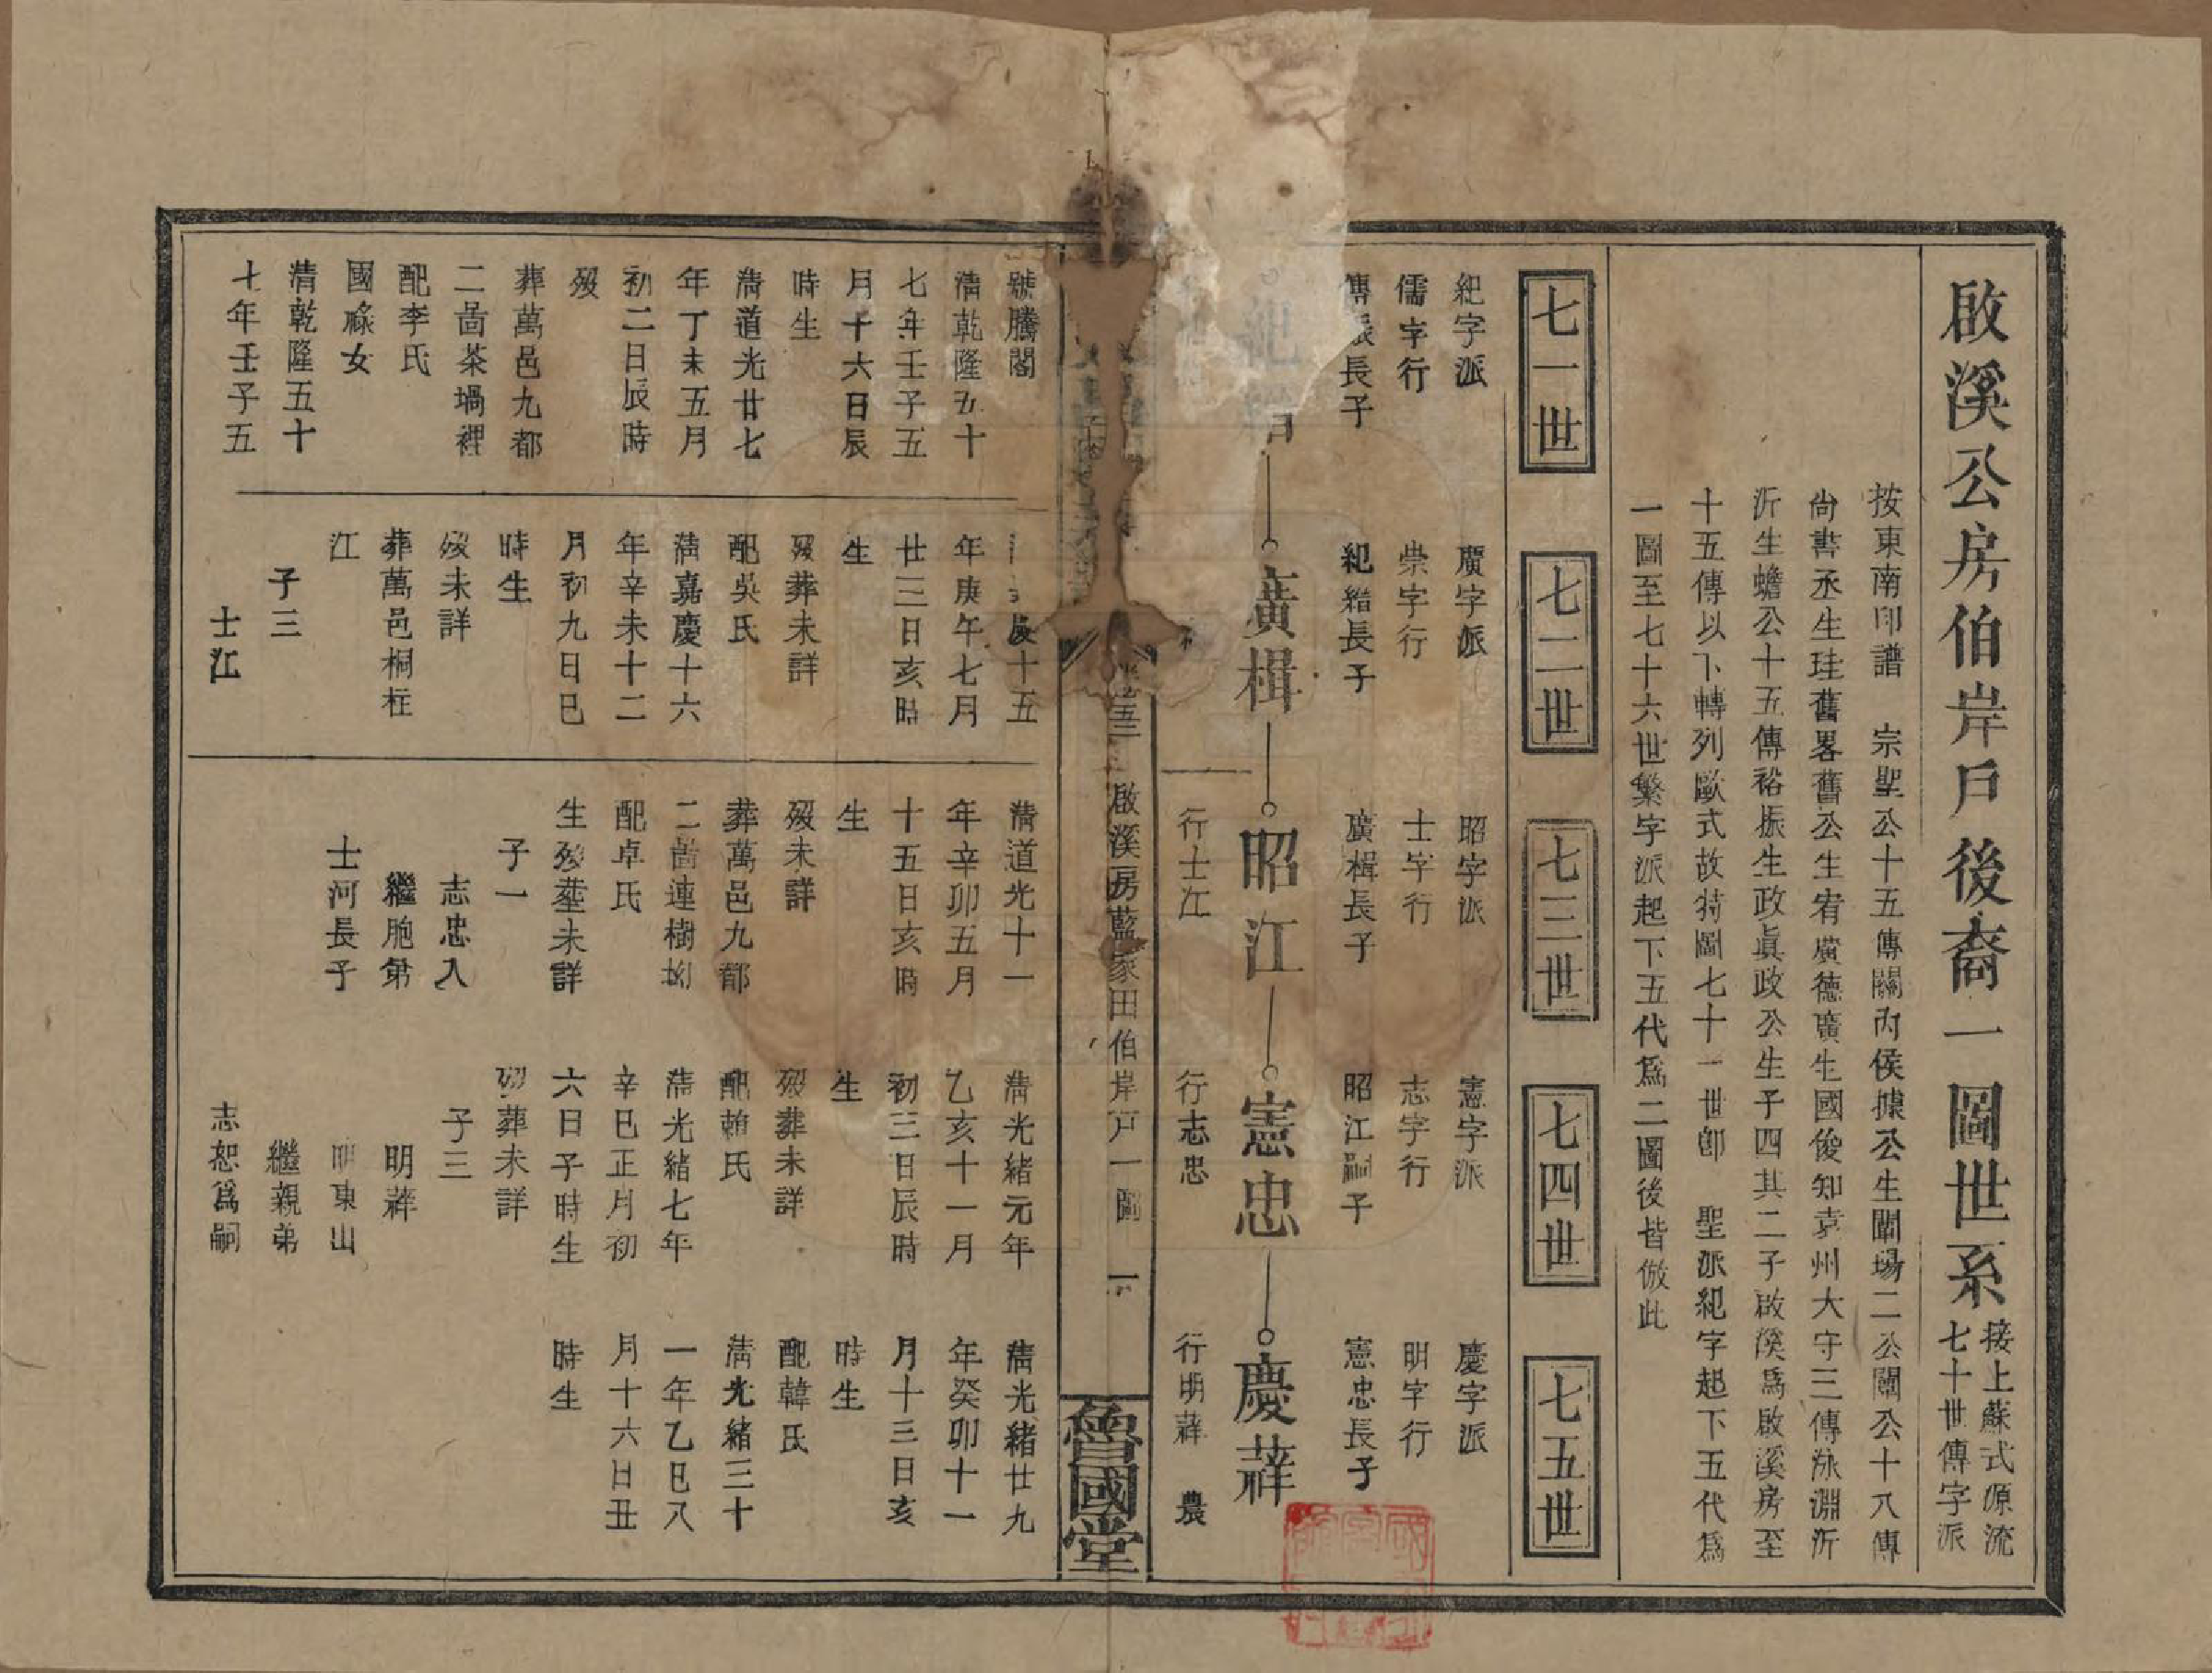 啟溪公房伯岸戶後裔一圖世系
接上蘇式源流
七十世傳字派
按東南印譜 宗聖公十五傳關內侯據公生闡場二公闡公十八傳
尚書丞生珪舊畧舊公生宥廣德廣生國俊知袁州大守三傳泳淵沂
沂生蟾公十五傳裕振生政眞政公生子四其二子啟溪爲啟溪房至
十五傳以下轉列歐式故特圖七十一世卽 聖派紀字起下五代爲
一圖至七十六世繁字派起下五代爲二圖後皆倣此
七一世
七二世
七三世
七四世
七五世
紀字派
儒字行
長子
廣字派
崇字行
紀緒長子
昭字派
士字行
廣楫長子
憲字派
志字行
昭江嗣子
慶字派
明字行
憲忠長子
廣楫
昭江
憲忠
慶䔥
行士江
行志忠
行明䔥 農
啟溪房藍家田伯岸戶一圖
魯國堂
號騰閣
清乾隆五十
七年壬子五
月十六日辰
時生
清道光廿七
年丁未五月
初二日辰時
歿
葬萬邑九都
二啚茶堝裡
配李氏
國祿女
清乾隆五十
七年壬子五
十五
年庚午七月
廿三日亥時
生
歿葬未詳
配吳氏
清嘉慶十六
年辛未十二
月初九日巳
時生
歿未詳
葬萬邑桐在
江
子三
士江
清道光十一
年辛卯五月
十五日亥時
生
歿未詳
葬萬邑九都
二啚連樹坳
配卓氏
生歿塟未詳
子一
志忠入
繼胞第
士河長子
清光緒元年
乙亥十一月
初三日辰時
生
歿葬未詳
配賴氏
清光緒七年
辛巳正月初
六日子時生
歿葬未詳
子三
明䔥
明東山
繼親弟
志恕爲嗣
清光緒廿九
年癸卯十一
月十三日亥
時生
配韓氏
清光緒三十
一年乙巳八
月十六日丑
時生